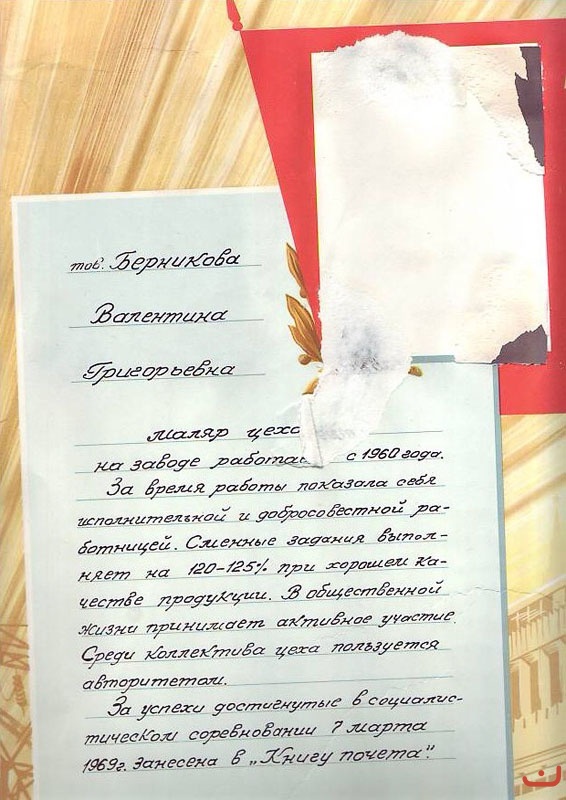 тов. Берникова
Валентина
Григорьевна
маляр цеха
на заводе работает с 1960 года.
За время работы показала себя
исполнительной и добросовестной ра-
ботницей. Сменные задания выпол-
няет на 120-125% при хорошем ка-
честве продукции. В общественной
жизни принимает активное участие.
Среди коллектива цеха пользуется
авторитетом.
За успехи достигнутые в социалис-
тическом соревновании 7 марта
1969г. занесена в „Книгу почета".